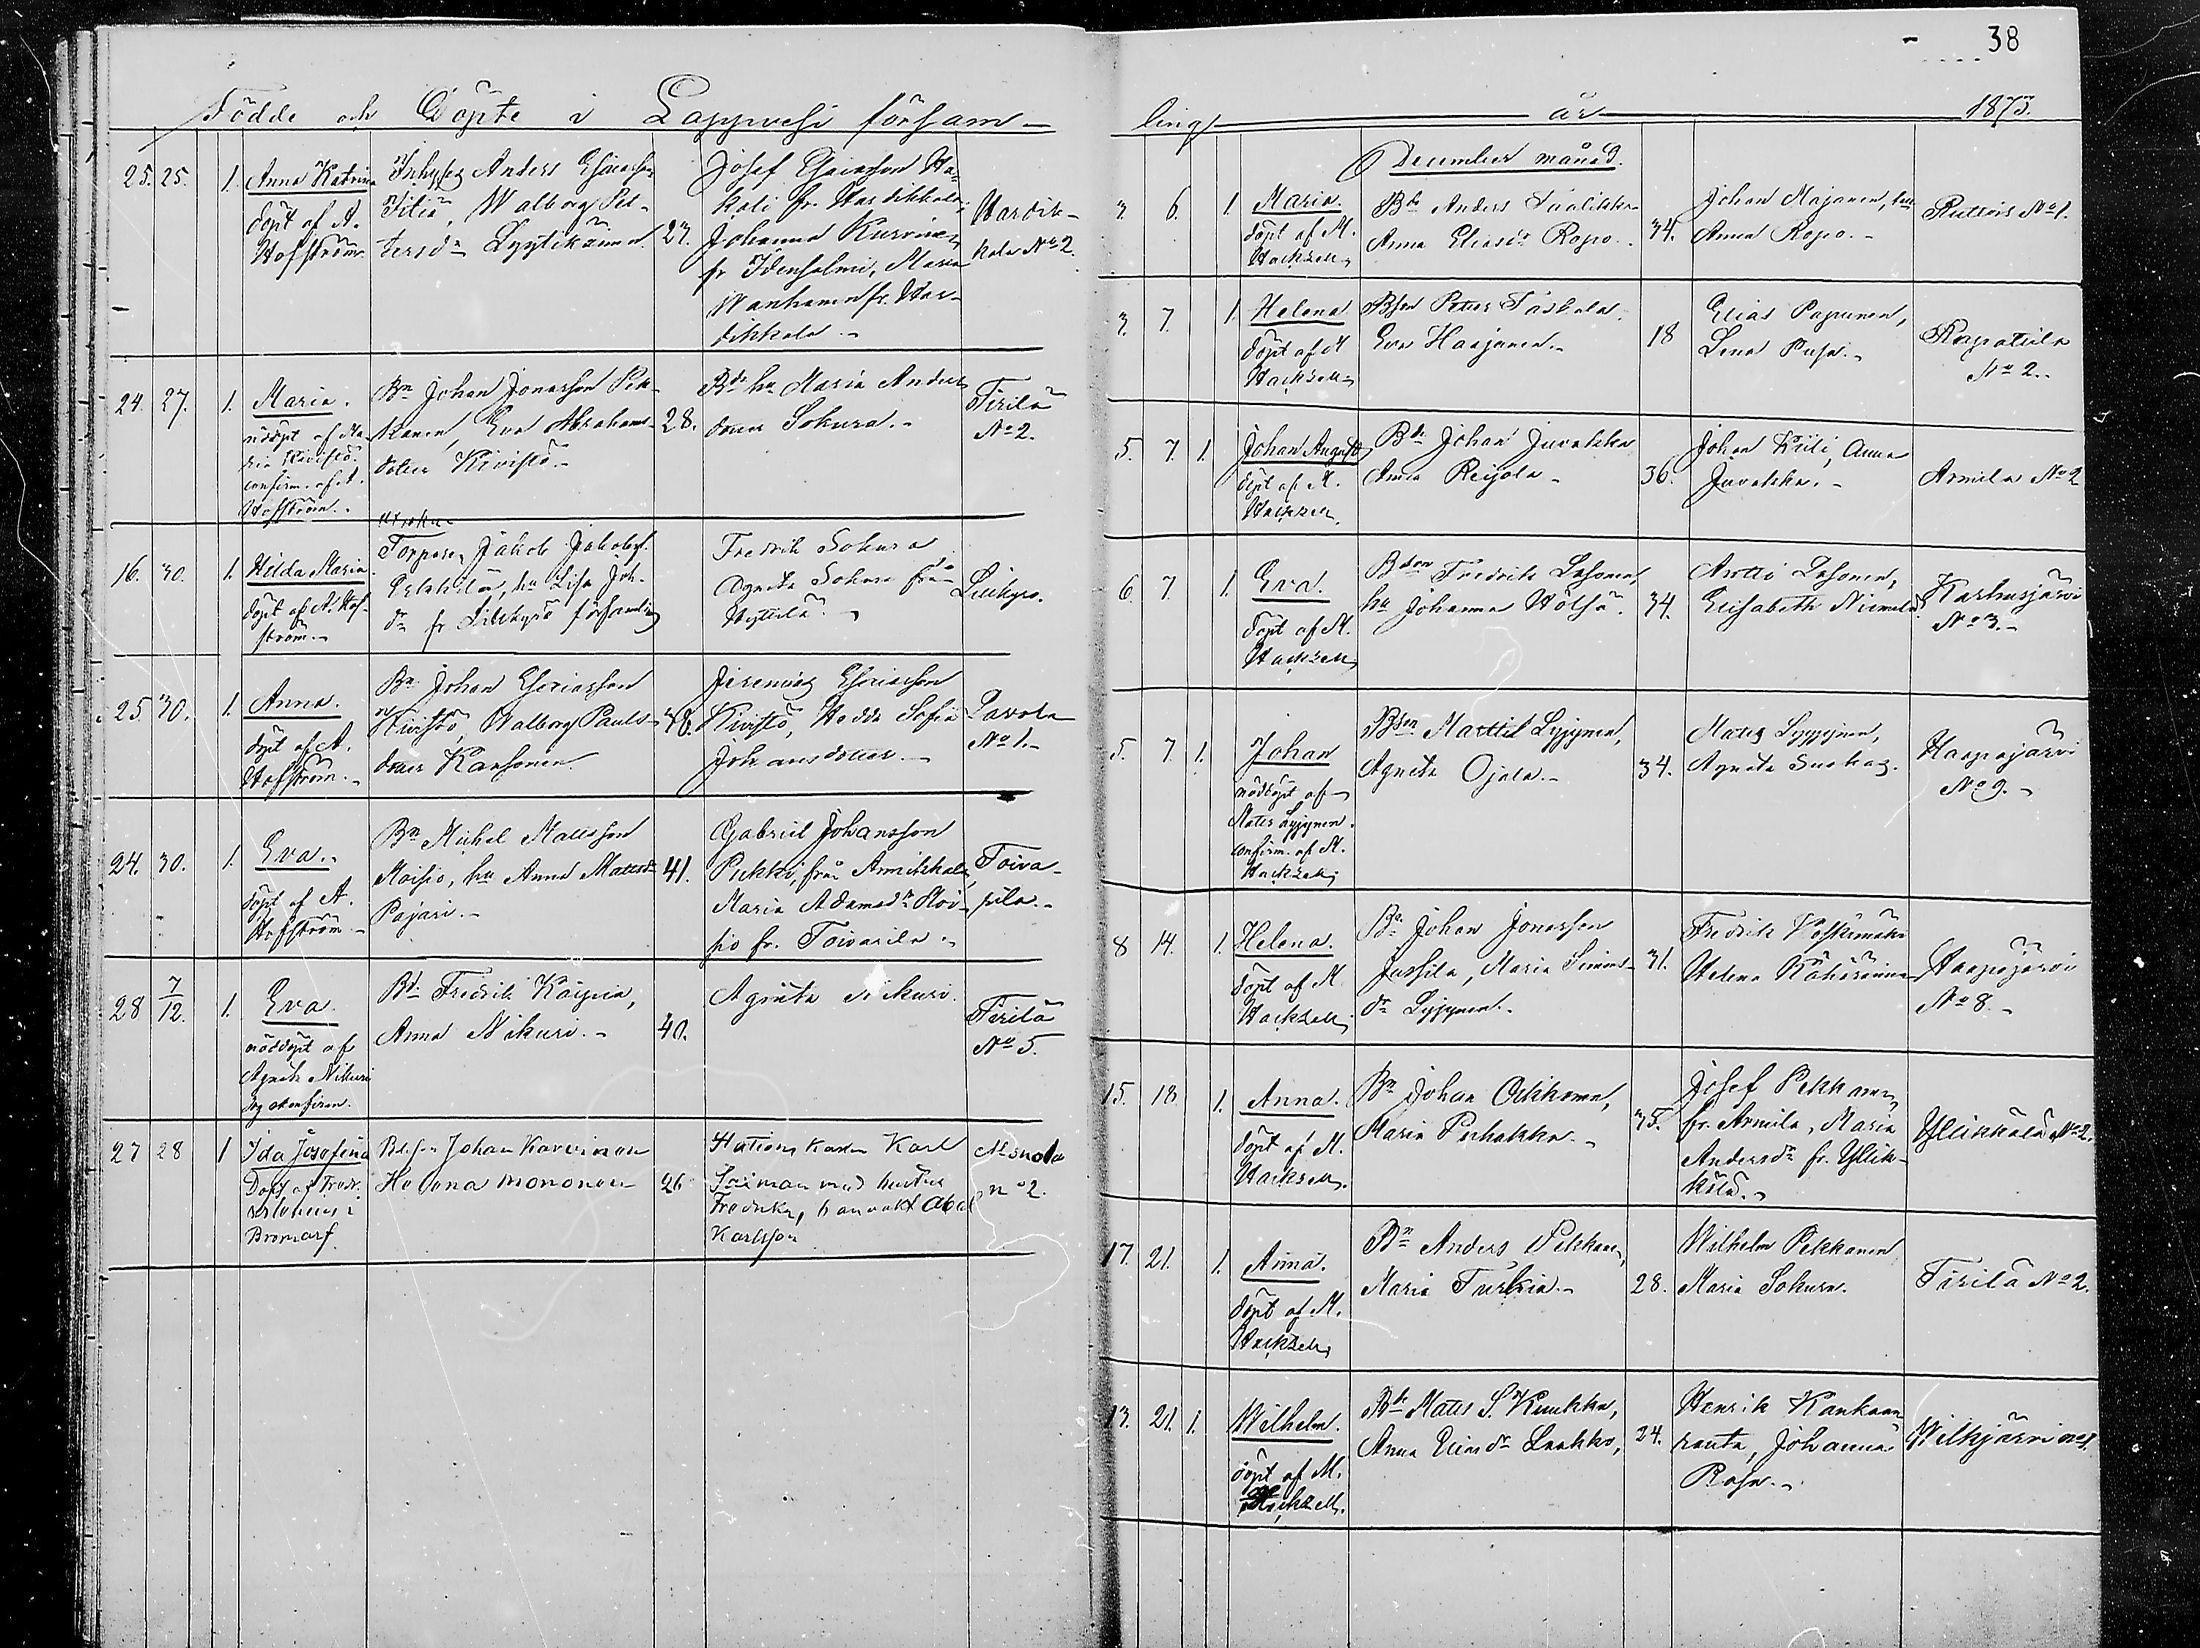 38
Födde och Döpte i Lappvesi försam-
ling år 1873.
25. 25. 1. Anna Katrina
döpt af A.
Hofström
Inhyses Anders Esaiasson
Titiä, Walborg Pet-
tersd:r Lyytikäinen
27.
Josef Esaiasson Ha-
kali fr. Hardikkala,
Johanna Kurvinen
fr Idensalmi, Maria
Wanhanen fr. Har-
dikkala.
Hardik-
kala No 2.
24. 27. 1. Maria.
nöddöpt af Ma-
ria Kivistö.
confirm. af A.
Hofström.
Bn Johan Jonasson Pek-
kanen, Eva Abrahams-
dotter Kivistö
28.
Bde hu Maria Anders
dotter Sokura.
Tirilä
No 2.
16. 30. 1. Hilda Maria
döpt af A. Hof-
ström.
Torparen Jakob Jakobss.
hu Lisa Joh.
dr fr Lillkyrö församling
Fredrik Sokura
Agneta Sokura från
Hyttilä.
Lillkyro.
25. 30. 1. Anna.
döpt af A.
Hofström.
Bn Johan Esaiasson
Kivistö, Walborg Pauls-
dotter Karhonen.
Jeremias Esaiasson
Kivistö, Hedda Sofia
Johansdotter.
Lavola
No 1.
24. 30. 1. Eva.
döpt af A.
Hofström.
Bn Mickel Mattsson
Moisio, hu Anna Mattsd:r
Pajari.
41.
Gabriel Johansson
Pukki, från Armikkala,
Maria Adamsd:r Moi-
sio fr. Toivarila.
Toiva-
rila.
28 7/12. 1. Eva.
nöddöpt af
Agneta Nikuri
Bd Fredrik Käyhiä,
Anna Nikuri.
40.
Agneta Nikuri.
Tirilä
No 5.
27 28 1 Ida Josefina
Döpt af Fredr.
Bromarf.
Johan Karvinen
Helena Mononen
26
Stations karlen Karl
Saiman med hustru
Fredrika, banvakt Abel
Karlsson
Mansola
no 2.
December månad.
3. 6. 1. Maria.
döpt af M.
Hackzell
Bde Anders Taalikka
Anna Eliasdr Ropo.
34.
Johan Majanen, hu
Anna Ropo.
Ruttois No 1.
3. 7. 1. Helena
döpt af M
Hackzell
Bson Petter Taskala
Eva Haajanen.
18
Elias Papunen,
Lena Pusa.
Rapatula
No 2.
5. 7. 1. Johan August
döpt af M.
Hackzell
Bde Johan Juvakka
Anna Reijola
36.
Johan Kiili, Anna
Juvakka.
Armila No 2
6. 7. 1. Eva.
döpt af M.
Hackzell
Bson Fredrik Lasonen
hu Johanna Hölsä.
34.
Antti Lasonen,
Elisabeth Niemelä.
Karhusjärvi
No 3.
5. 7. 1. Johan
nöddöpt af
Matts Lyijynen.
confirm. af M.
Hackzell
Bson Mattil Lyijynen,
Agneta Ojala.
34.
Matts Lyijynen,
Agneta Suokas.
Haapajärvi
No 9.
8 14. 1. Helena.
döpt af M
Hackzell
Bn Johan Jonasson
Jussila, Maria Simons-
dr Lyijynen.
31.
Fredrik Koskimäki
Helena Kähärinen
Haapajärvi
No 8.
15. 18 1. Anna.
döpt af M.
Hackzell.
Bn Johan Oikkonen,
Maria Puhakka.
35.
Josef Pekkanen
fr. Armila, Maria
Andersdr fr. Ylik-
kälä.
Ylikkälä No 2.
17. 21. 1. Anna.
döpt af M.
Hackzell
Bn Anders Pekkanen,
Maria Turkia.
28.
Wilhelm Pekkanen
Maria Sokura.
Tirilä No 2.
13. 21. 1. Wilhelm.
döpt af M.
Hackzell.
Bde Matts S. Kuukka,
Anna Laakko,
24.
Henrik Kankaan
ranta, Johanna
Rasa.
Wilkjärvi no 1.